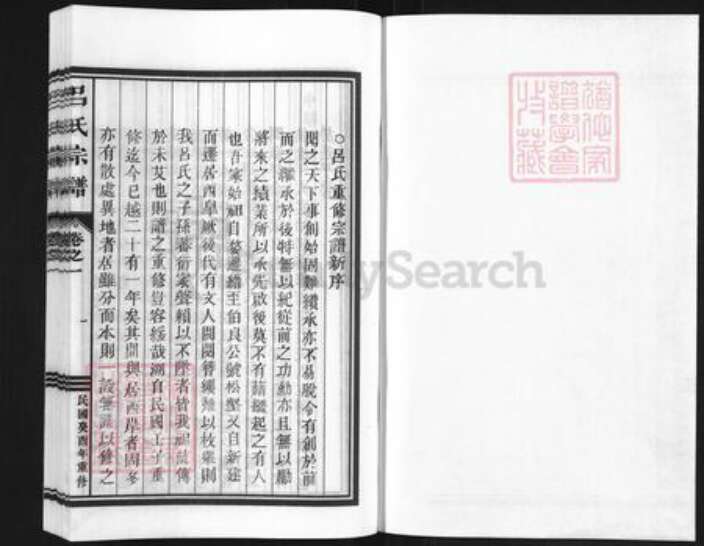 ○呂氏重修宗譜新序
聞之天下事創始固難纘承亦不易脫令有創於前
而之繼承於後特無以紀從前之功勳亦且無以勵
將來之績業所以承先啟後莫不有藉撥起之有人
也吾家始祖自婺遷繡至伯良公號松壑又自新建
而遷居西皐厥後代有文人閥閱簪纓以枝棠則
我呂氏之子孫蕃衍家聲賴以不墜者皆我祖傳
於未艾也則譜之重修豈容緩哉溯自民國壬子重
修迄今已越二十有一年矣其間與居西岸者固多
亦有散處異地者居雖分而本則一設無譜以修之
呂氏宗譜
卷之一
一
民國癸酉年重修
譜學會
收藏
FamilySearch